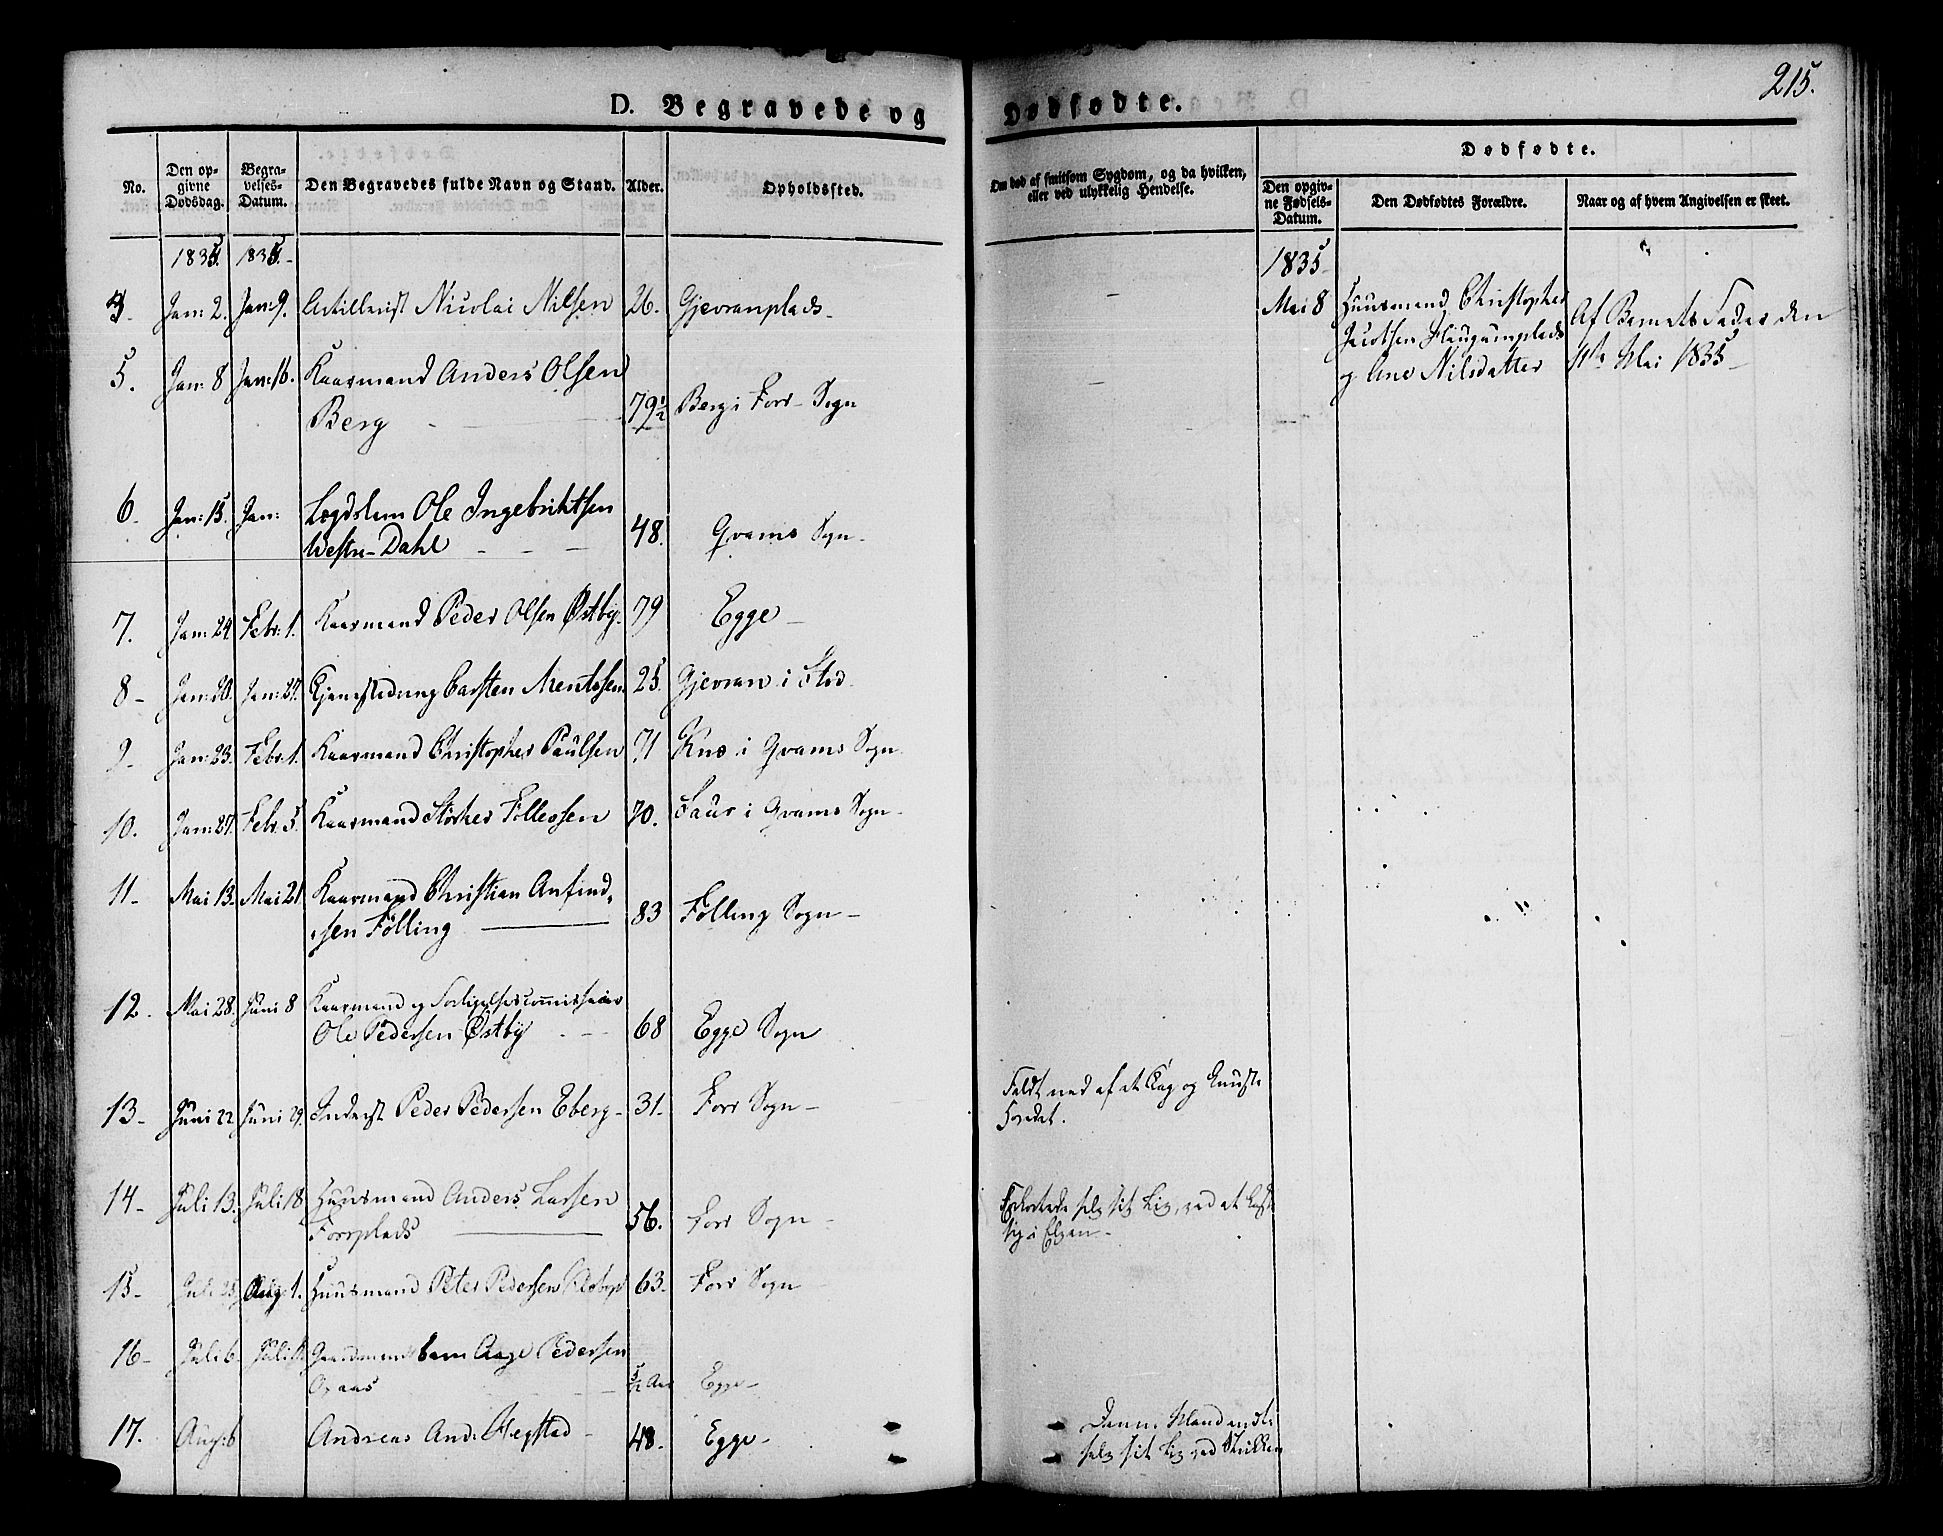 215.
D. Begravede og Dødfødte.
No.
Den opgivne Dødsdag.
Begravelses-Datum.
Den Begravedes fulde Navn og Stand.
Alder.
Opholdssted.
Om død af smitsom Sygdom, og da hvilken, eller ved ulykkelig Hendelse.
Dødfødte.
Den opgivne Fødsels-Datum.
Den Dødfødtes Forældre.
Naar og af hvem Angivelsen er skeet.
1835. 1835.
1835
4. Jan: 2. Jan: 9. Artillerist Nicolai Nilsen 26. Gjevranplads.
Mai 8 Huusmand Christopher
Jacobsen Haugumplads
og Ane Nilsdatter
Af Barnets Fader den
11te Mai 1835
5. Jan: 8 Jan: 16. Kaarmand Anders Olsen
Berg 79 1/2 Berg i Forr Sogn
6. Jan: 15. Jan: Lægdslem Ole Ingebriktsen
Westre-Dahl 48. Qvams Sogn.
7. Jan: 24 Febr: 1. Kaarmand Peder Olsen Østby. 79 Egge
8 Jan: 20. Jan: 27. Carsten Mentssen 25. Gjevran i Stod
9 Jan: 23. Febr: 1. Kaarmand Christopher Paulsen 71 i Qvams Sogn
10. Jan: 27. Febr. 5. Kaarmand Størker Tollessen 70. i Qvams Sogn
11 Mai 13. Mai 21 Kaarmand Christian Anfind-
sen Følling 83 Følling Sogn
12. Mai 28. Juni 8 Kaarmand og Forligelsescommissair
Ole Pedersen Østby 68 Egge Sogn
13 Juni 22 Juni 29. Inderst Peder Pedersen Eberg 31. Forr Sogn
Faldt ned af et Tag og knuste
Hovedet.
14 Juli 13. Juli 18 Huusmand Anders Larsen
Forrplads 56. Forr Sogn
selv sit Liv, ved at kaste
sig i Elven
15 Juli 25 Aug 1. Huusmand Peter Pedersen 63. Forr Sogn
16 Juli 6 Juli Gaardmandsbarn Aage Pedersen
5/12 Aar Egge
17. Aug: 6 Andreas And: Hegstad 48. Egge
Denne Mand endte
selv sit Liv ved Strikken